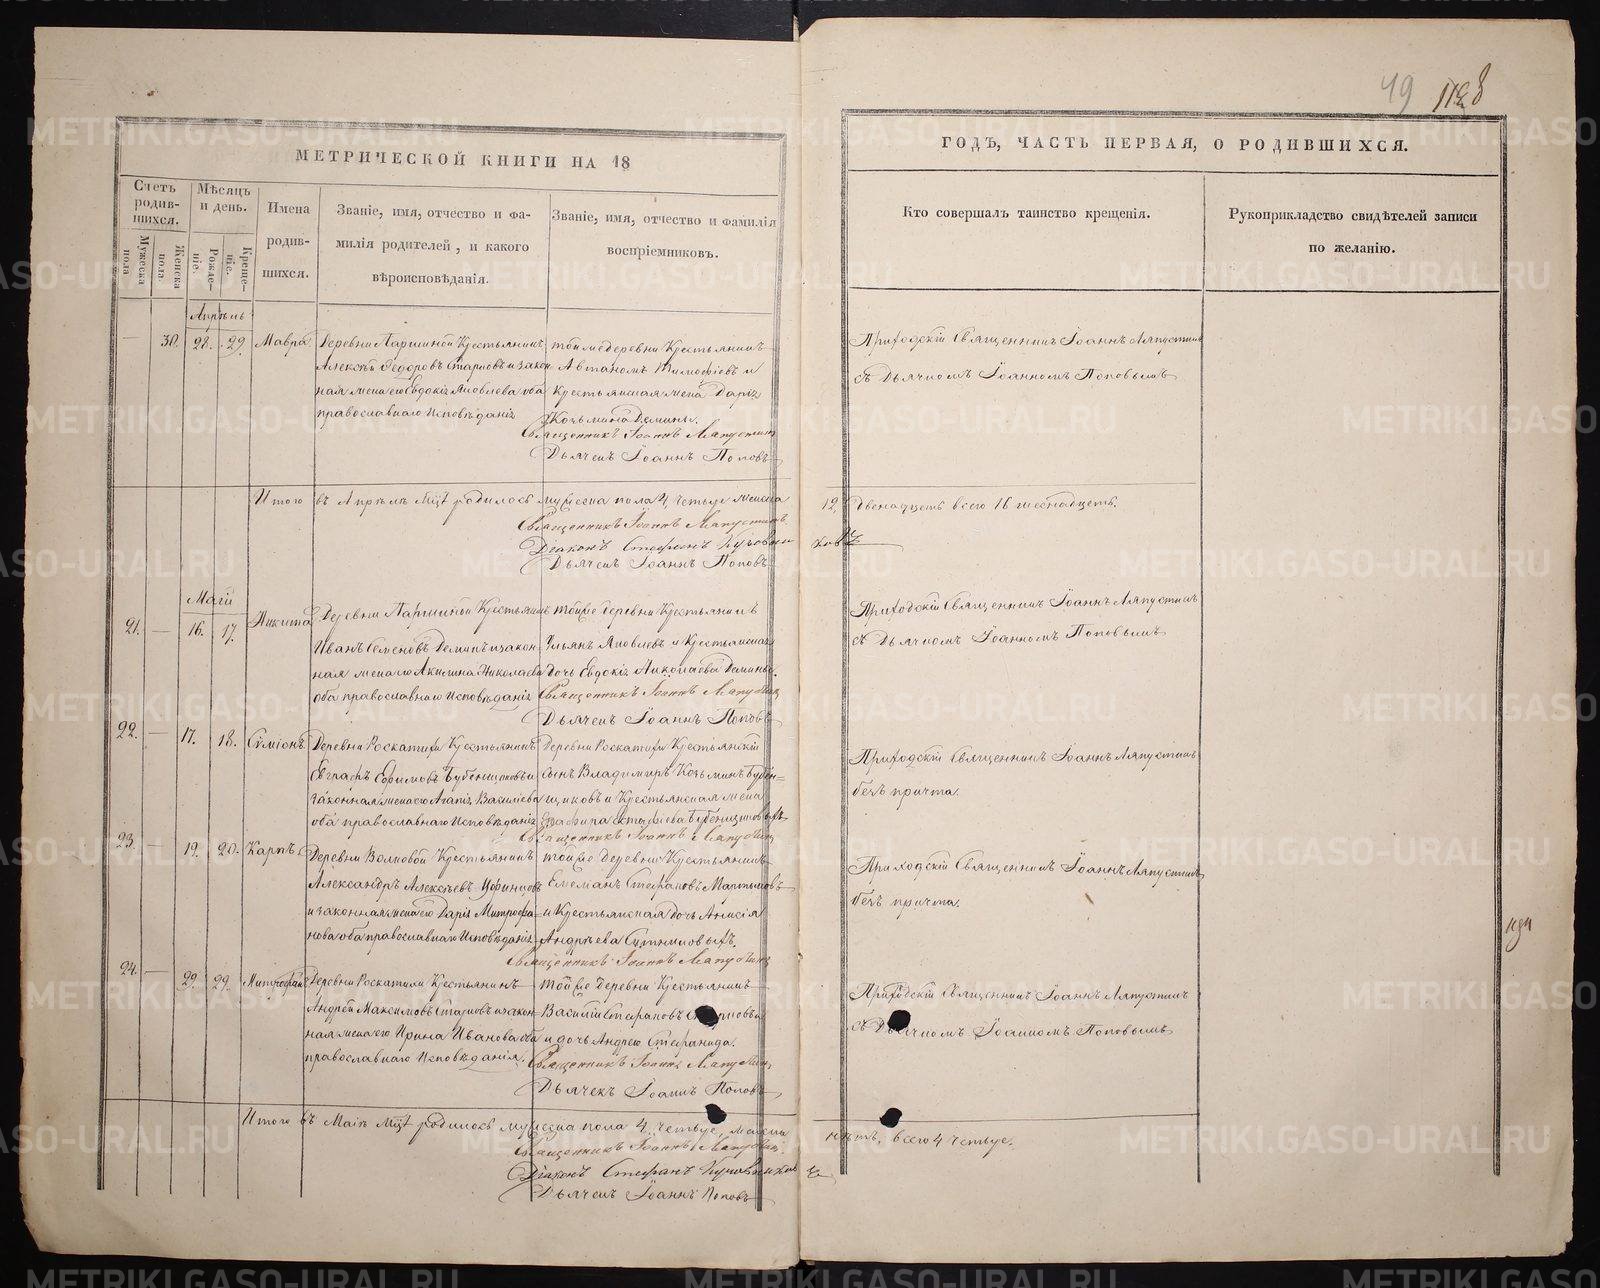 49
МЕТРИЧЕСКОЙ КНИГИ НА 18
ГОДЪ, ЧАСТЬ ПЕРВАЯ, О РОДИВШИХСЯ.
Счетъ родив-шихся.
Мужеска пола
Женска пола.
Мѣсяцъ и день.
Рожде-ніе.
Креще-ніе.
Имена
родив-
шихся.
Званіе, имя, отчество и фа-
милія родителей, и какого
вѣроисповѣданія.
Званіе, имя, отчество и фамилія
воспріемниковъ.
Кто совершалъ таинство крещенія.
Рукоприкладство свидѣтелей записи
по желанію.
Апрѣль
— 30. 28. 29. Мавра
Деревни Лариной Крестьянинъ
Алексѣй Ѳедоровъ Старковъ и закон
ная жена его Евдокія Яковлева оба
православнаго Исповѣданія
той же деревни Крестьянинъ
Автаномъ Тимофѣевъ и
Крестьянская жена Дарія
Козьмина Демины.
Священникъ Іоаннъ Ляпустинъ
Дьячекъ Іоаннъ Поповъ
Приходскій Священникъ Іоаннъ Ляпустинъ
съ Дьячкомъ Іоанномъ Поповымъ
Итого въ Апрѣлѣ Мцѣ родилось мужеска пола 4, четыре женска
12, Двенадцать всего 16 шеснадцеть.
Священникъ Іоаннъ Ляпустинъ
Діаконъ Стефанъ
Дьячекъ Іоаннъ Поповъ
Маій
21. — 16. 17. Никита
Деревни Лариной Крестьянинъ
Иванъ Семеновъ Деминъ и закон
ная жена его Акилина Николаева
оба православнаго Исповѣданія
той же деревни Крестьянинъ
Ульянъ Яковлевъ и Крестьянская
Дочь Евдокія Николаева Демины.
Священникъ Іоаннъ Ляпустинъ
Дьячекъ Іоаннъ Поповъ
Приходскій Священникъ Іоаннъ Ляпустинъ
съ Дьячкомъ Іоанномъ Поповымъ
22. — 17. 18. Сѵміонъ
Деревни Роскатихи Крестьянинъ
Евграфъ Ефимовъ Бубенщиковъ и
законная жена его Агапія Василіева
оба православнаго Исповѣданія
Деревни Роскатихи Крестьянскій
сынъ Владимиръ Козьминъ Бубен=
щиковъ и Крестьянская жена
Бубенщиковы
Священникъ Іоаннъ Ляпустинъ
Приходскій Священникъ Іоаннъ Ляпустинъ
безъ причта.
23. — 19. 20. Карпъ
Деревни Волковой Крестьянинъ
Александръ Алексѣевъ
и законная жена его Дарія Митрофа=
нова оба православнаго Исповѣданія
той же деревни Крестьянинъ
Емеліанъ Стефановъ Мартьяновъ
и Крестьянская дочь Анисія
Андрѣева Ситниковыхъ.
Священникъ Іоаннъ Ляпустинъ
Приходскій Священникъ Іоаннъ Ляпустинъ
безъ причта.
24. — 29. 29. Митрофанъ
Деревни Роскатихи Крестьянинъ
Андрей Максимовъ Старковъ и закон=
ная жена его Ирина Иванова оба
православнаго Исповѣданія.
той же деревни Крестьянинъ
Василій Стефановъ
и дочь Андрея Стефанида.
Священникъ Іоаннъ Ляпустинъ
Дьячекъ Іоаннъ Поповъ
Приходскій Священникъ Іоаннъ Ляпустинъ
съ Дьячкомъ Іоанномъ Поповымъ
Итого въ Маіѣ Мцѣ родилось мужеска пола 4. четыре, женска
нѣтъ, всего 4 четыре.
Священникъ Іоаннъ Ляпустинъ
Діаконъ Стефанъ
Дьячекъ Іоаннъ Поповъ
METRIKI.GASO-URAL.RU